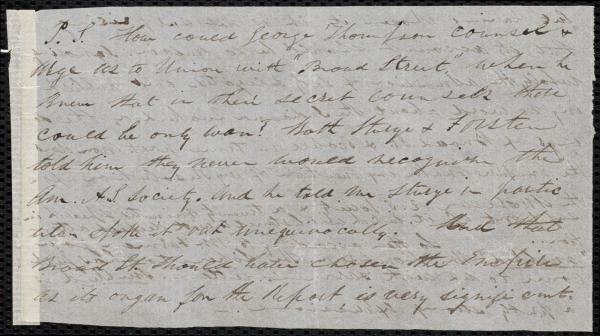 P. S. How could George Thompson counsel &
urge us to Union with "Broad Street," when he
knew that in their secret counsels there
could be only war? Both Sturge & Forster
told him they never would recognise the
Am. A.S. Society. And he told me Sturge in partic
ular spoke it out unequivocally. And that
Broad St. should have chosen the
as its organ for the Report is very signifi cant.